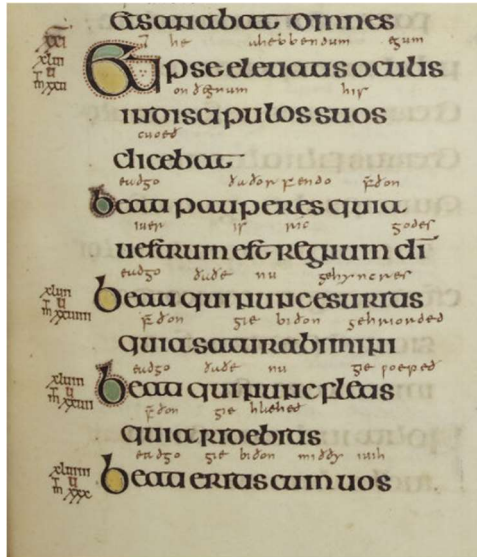 Et sanabat omnes
he ahebbendum egum
Et ipse eleuatis oculis
on ðegnum his
in discipulos suos
cuoeð
dicebat
eadgo ðaðorfendo f̄ðon
beati pauperes quia
iuer is ric godes
uestrum est regnum dī
eadgo ðaðe nu gehyncres
beati qui nunc esuritis
f̄ðon gie biðon gehriorded
quia saturabimini
eadgo ðaðe nu gie woepeð
beati qui nunc fletis
f̄ðon gie hlæheð
quia ridebitis
eadgo gie biðon miððy iuih
beati eritis cum uos